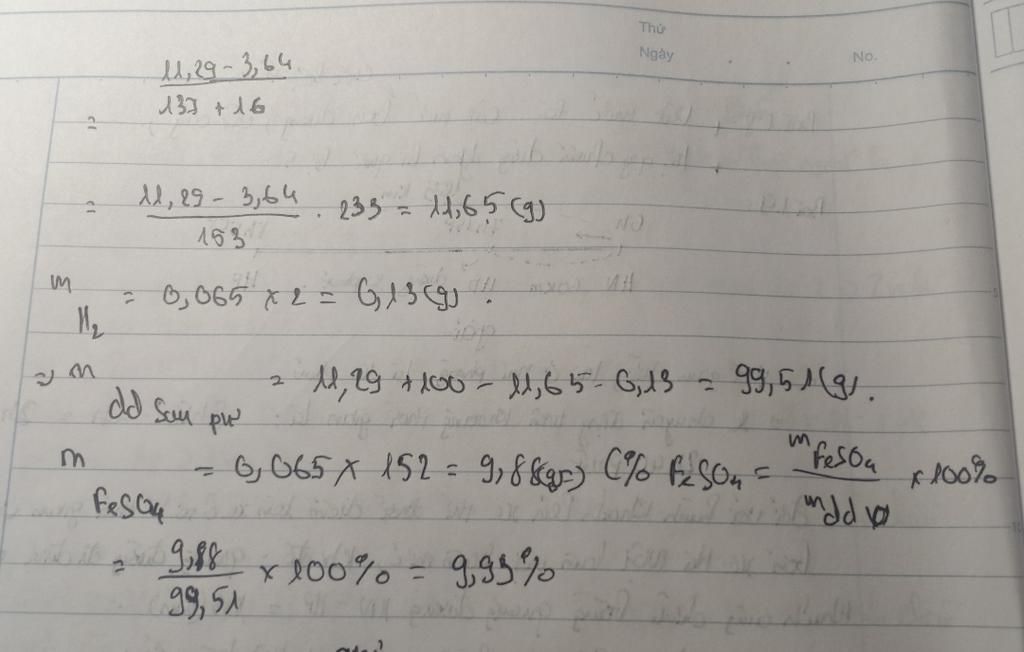 Thứ
Ngày . . No.
11,29 - 3,64
137 + 16
=
= 11,29 - 3,64 / 153 . 233 = 11,65 (g)
m H2 = 0,065 x 2 = 0,13 (g) .
=> m dd sau pư = 11,29 + 100 - 11,65 - 0,13 = 99,51 (g).
m FeSO4 = 0,065 x 152 = 9,88(g) => C% FeSO4 = m FeSO4 / m dd x 100%
= 9,88 / 99,51 x 100% = 9,93%